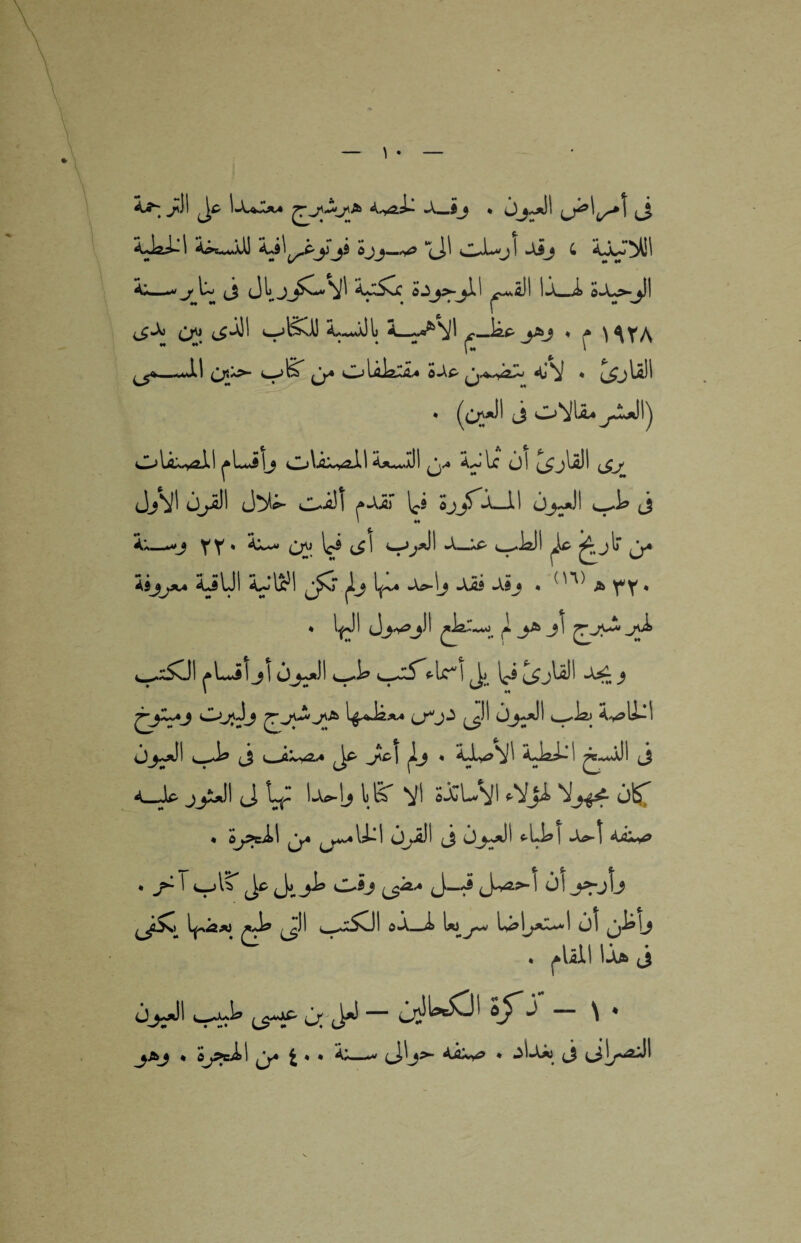 — ١٠ —
أمراض العيون . وقد نشره هيرشبرج معتمدا على الترجمة
الثلاثية ، وقد أرسلت إلى صورة فوتوغرافية للنسخة الخطية
الوحيدة لهذا القسم الموجودة بمكتبة الاسكوريال في باريس سنة
١٩٢٨ م . وهو عظيم الأهمية بالنسبة للكتاب الذى بين يدى
القارئ . لأنه يتضمن عدة مقتطفات من كتاب حنين المسمى
(العشر مقالات في العين) .
يرى القارئ أن غاية من التسعة المصنفات وأقسام المصنفات
في طب العيون المذكورة فيما تقدم ألفت خلال القرن الأول
من تاريخ علم الطب عند العرب أى فيما بين سنة ٢٢٠ وسنة
٣٢٠ هـ (١٦) . وقد فقد واحد منها ولم تكن الثمانية الباقية معروفة
لهيرشبرج أو هو لم يستطع الوصول إليها .
وقد يجد القارئ فيما يلى أسماء كتب طب العيون أو أقسام الكتب
الخاصة بطب العيون التى درس معظمها هيرشبرج وليرت ومتفوخ
في النسخ الخطية الأصلية . ولم أعثر على مصنف في طب العيون
كان مجهولا لهؤلاء الأساتذة إلا كتابا واحدا لم يجر لى العثور عليه
صنفه أحد أطباء العيون في القرن الخامس من الهجرة .
وإنى أرجو أن أحصل في مصر وقت طويل على كتاب آخر .
وأظن أن استعراضا سريعا لهذه الكتب التى طبع بعضها يكفى
في هذا المقام .
١٠ — تذكرة الكحالين — لعلى بن عيسى طبيب العيون
النصرانى في بغداد . صنفه حوالى سنة ٤٠٠ من الهجرة . وهو